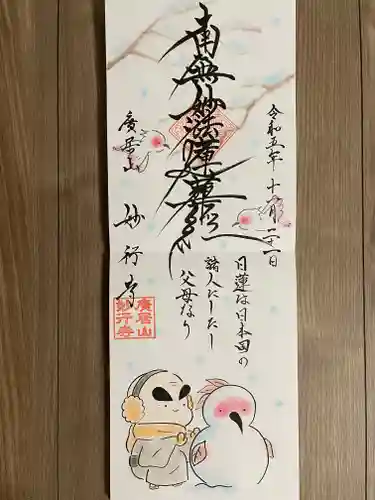 令和五年十二月二十一日
南無妙法蓮華経
日蓮は日本国の
諸人にしたし
父母なり
廣居山
妙行寺
廣居山
妙行寺